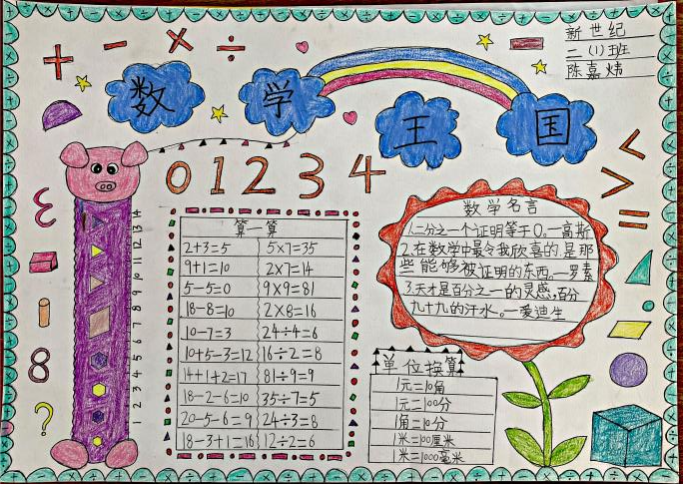 新世纪
二(1)班
陈嘉婧
+ - × ÷
数学王国
0 1 2 3 4
< > =
3
8
?
1 2 3 4 5 6 7 8 9 10 11 12 13 14
算一算
2+3=5 5×7=35
9+1=10 2×7=14
5-5=0 9×9=81
18-8=10 2×8=16
10-7=3 24÷4=6
10+5-3=12 16÷2=8
14+1+2=17 81÷9=9
18-2-6=10 35÷7=5
20-5-6=9 24÷3=8
18-3+1=16 12÷2=6
数学名言
1.二分之一个证明等于0。一高斯
2.在数学中最令我欣喜的是那
些能够被证明的东西。一罗素
3.天才是百分之一的灵感,百分
九十九的汗水。一爱迪生
单位换算
1元=10角
1元=100分
1角=10分
1米=100厘米
1米=1000毫米